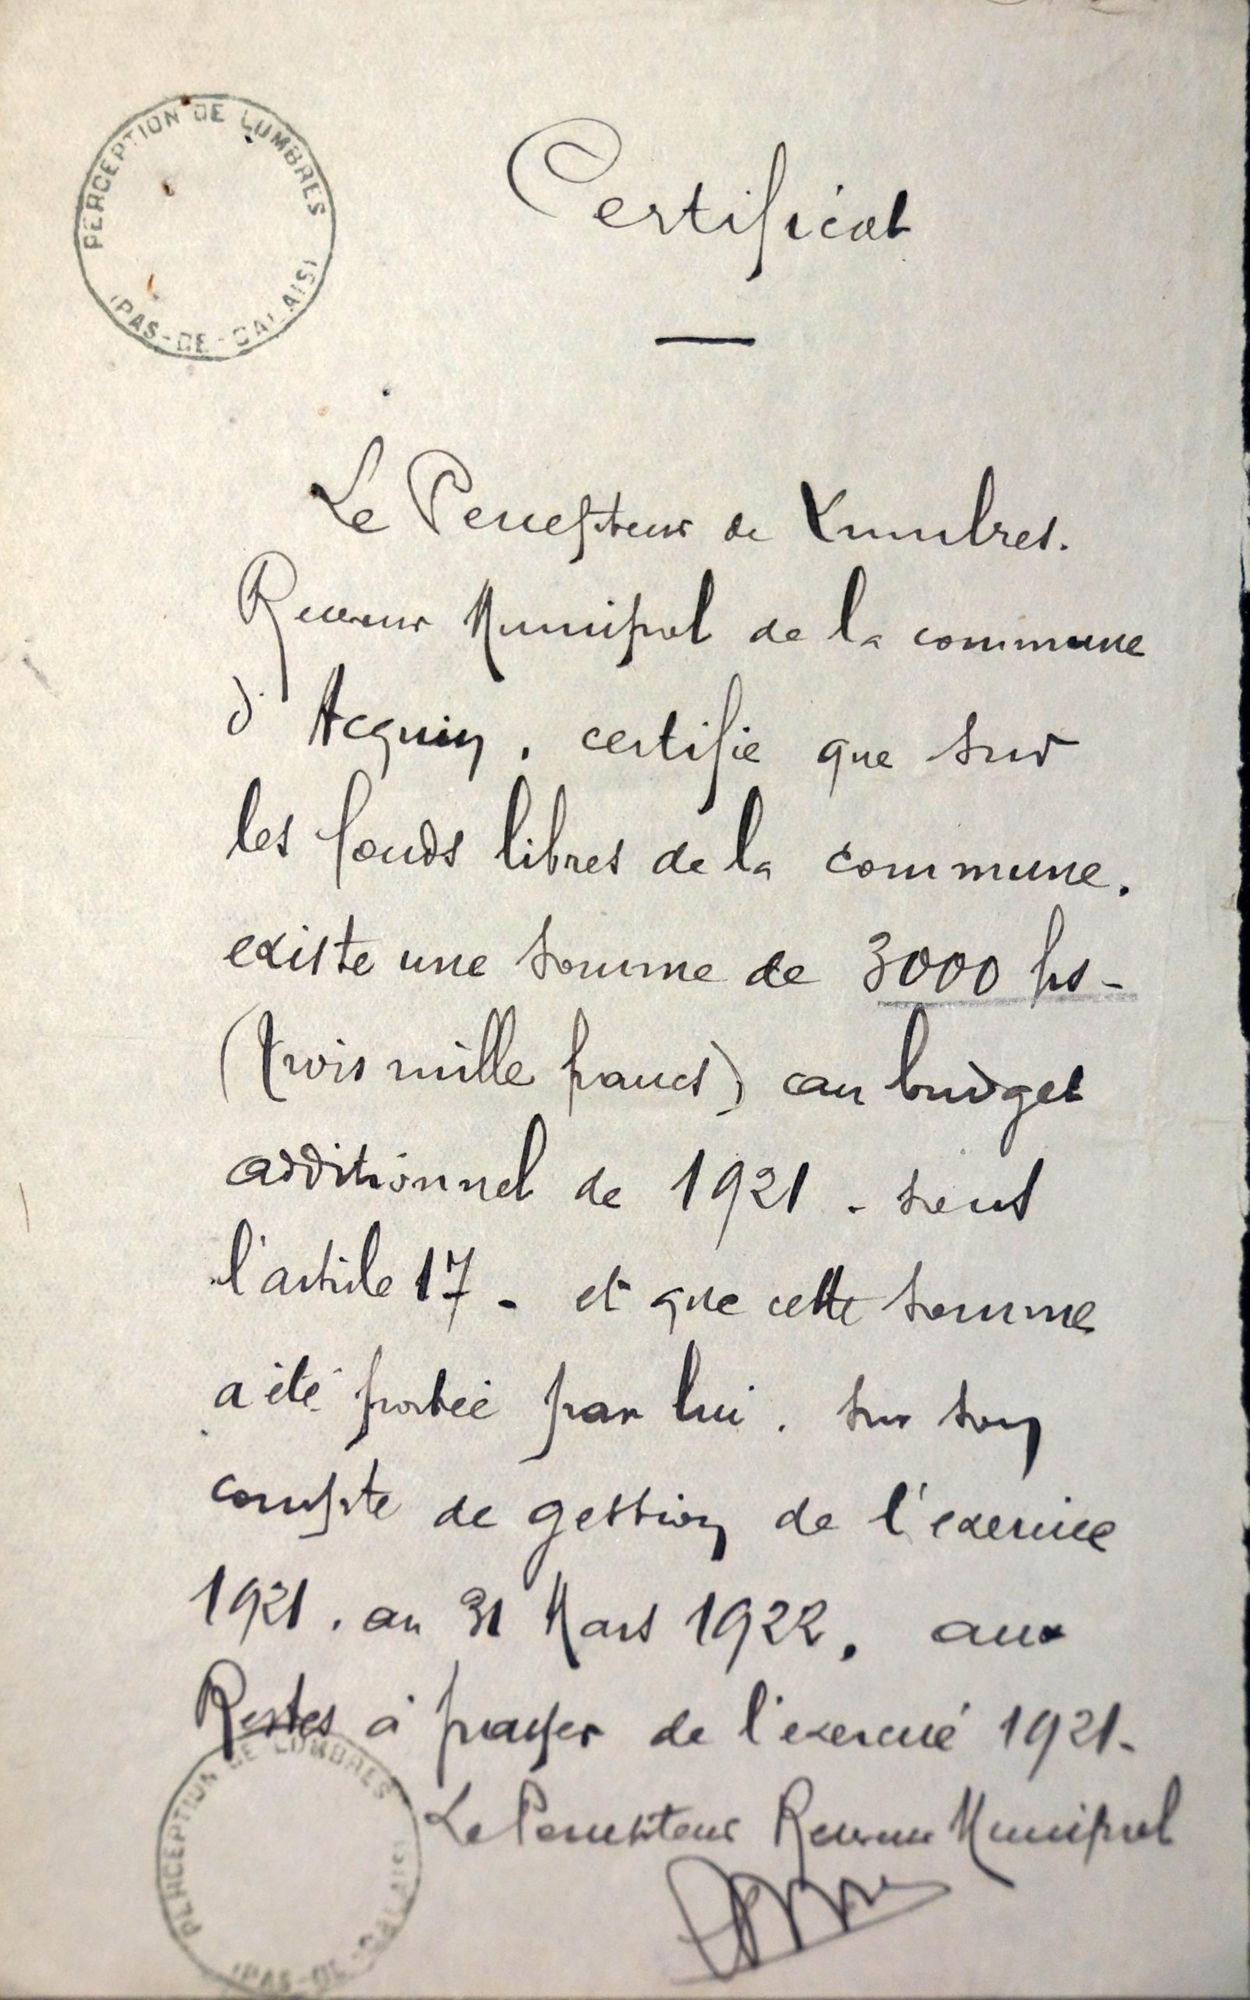 PERCEPTION DE LUMBRES
(PAS-DE-CALAIS)
Certificat
Le Percepteur de Lumbres.
Receveur Municipal de la commune
d'Acquin, certifie que sur
les fonds libres de la commune.
existe une somme de 3000 frs -
(trois mille francs) au budget
additionnel de 1921 -
l'article 17 - et que cette somme
a été portée par lui. sur son
compte de gestion de l'exercice
1921. au 31 Mars 1922, aux
Restes à payer de l'exercice 1921-
Le Percepteur Receveur Municipal
PERCEPTION DE LUMBRES
(PAS-DE-CALAIS)